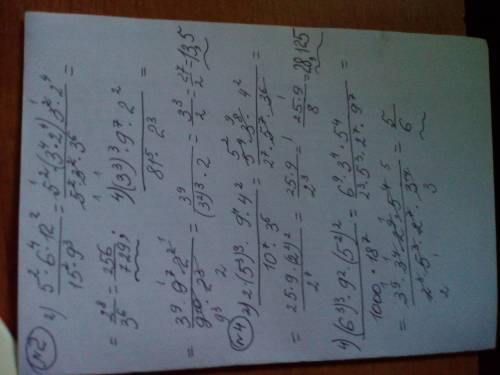 №2
2) 5²·6⁴·12² / 15²·9³ = 5²·(3⁴·2⁴)·3²·2⁴ / 5²·3²·3⁶ =
= 2⁸/3⁶ = 256/729; 4) (3³)³·9⁷·2² / 81⁵·2³ =
= 3⁹·9⁷·2² / 9¹⁰·2³ = 3⁹ / (3²)³·2 = 3³/2 = 27/2 = 13,5
№4
2) 2·(5³)³·9⁴·4² / 10⁷·3⁶ = 5⁹·3⁸·4² / 2⁷·5⁷·3⁶ =
= 25·9·(2²)² / 2⁷ = 25·9 / 2³ = 25·9 / 8 = 28,125
4) (6³)³·9²·(5⁻²)² / 1000·18⁷ = 6⁹·3⁴·5⁴ / 2³·5³·2⁷·9⁷ =
= 3⁹·3⁴·2⁹·5⁴ / 2³·5³·2⁷·3¹⁴ = 5/6